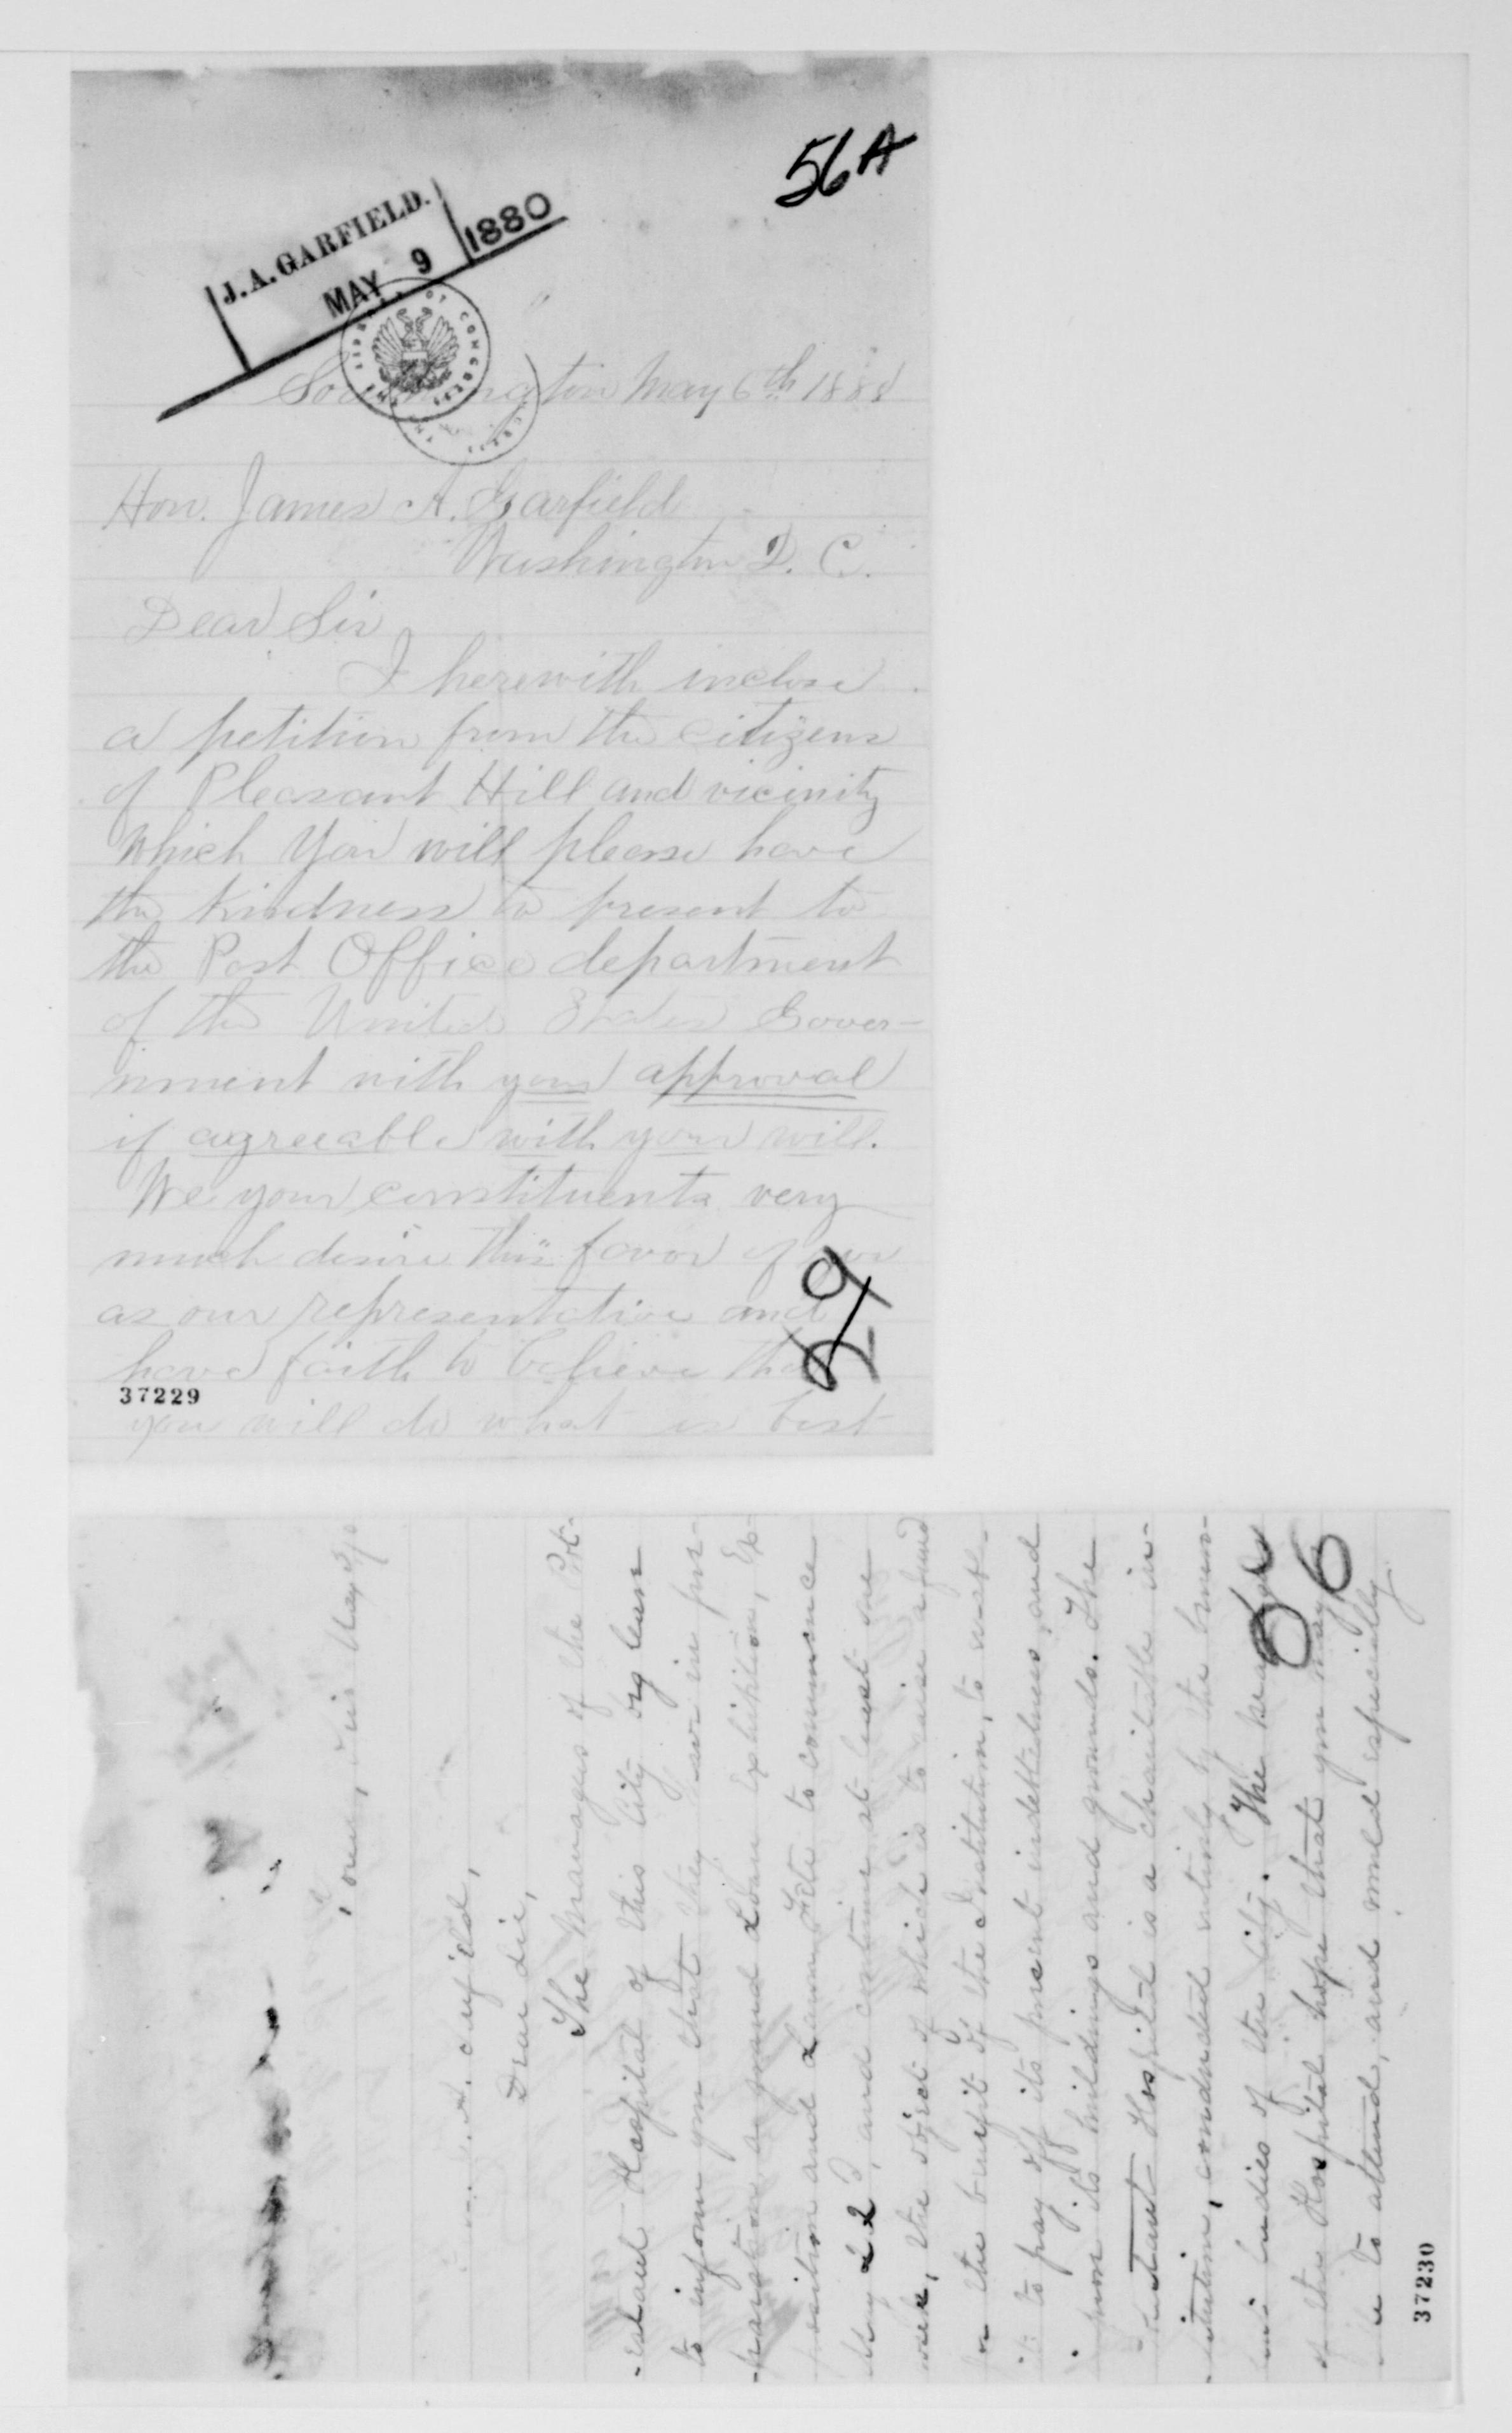 56A
J. A. GARFIELD.
MAY 9 1880
May 6th 188
Hon. James A. Garfield
Washington D. C.
Dear Sir
I herewith inclose
a petition from the citizens
of Pleasant Hill and vicinity
which you will please have
the kindness to present to
the Post Office department
of the United States Gover-
nment with your approval
if agreeable with your will.
We your constituents very
much desire this favor of
as our representative and
have faith to believe that
you will do what is best
29
37229
A. Garfield,
Dear Sir,
The Managers of the Prot-
estant Hospital of this City beg leave
to inform you that they have in pre-
paration a grand Loan Exhibition, Ex-
position and Lawn Fete to commence
May 22d, and continue at least one
week, the object of which is to raise a fund
for the benefit of the Institution, to wit:-
to pay off its present indebtedness, and
its buildings and grounds. The
Protestant Hospital is a charitable in-
stitution, conducted entirely by the
ladies of the City. The
of the Hospital hope that you may
to attend, and would especially
37230